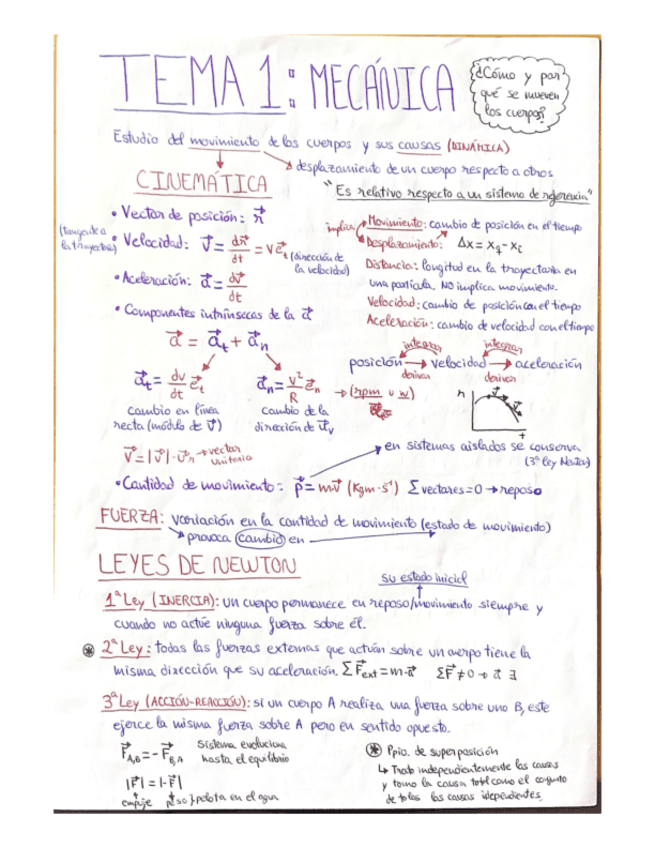 TEMA 1: MECÁNICA
¿Cómo y por
qué se mueven
los cuerpos?
Estudio del movimiento de los cuerpos y sus causas (DINÁMICA)
desplazamiento de un cuerpo respecto a otros
CINEMÁTICA
"Es relativo respecto a un sistema de referencia"
• Vector de posición: r⃗
(tangente a
la trayectoria)
• Velocidad: v⃗ = dr⃗/dt = v e⃗t (dirección de
la velocidad)
• Aceleración: a⃗ = dv⃗/dt
• Componentes intrínsecas de la a⃗
a⃗ = a⃗t + a⃗n
a⃗t = dv/dt e⃗t
a⃗n = v²/R e⃗n → (rpm u w)
cambio en línea
recta (módulo de v⃗)
cambio de la
dirección de u⃗v
v⃗ = |v⃗| · u⃗v → vector
unitario
implica
Movimiento: cambio de posición en el tiempo
Desplazamiento: Δx = xf - xi
Distancia: longitud en la trayectoria en
una partícula. NO implica movimiento.
Velocidad: cambio de posición con el tiempo
Aceleración: cambio de velocidad con el tiempo
integrar integrar
posición → velocidad → aceleración
derivar derivar
r
t
en sistemas aislados se conserva
(3ª ley Newton)
• Cantidad de movimiento: p⃗ = m·v⃗ (Kgm·s⁻¹) Σvectores=0 → reposo
FUERZA: variación en la cantidad de movimiento (estado de movimiento)
provoca cambio en
LEYES DE NEWTON
su estado inicial
1ª Ley (INERCIA): un cuerpo permanece en reposo/movimiento siempre y
cuando no actúe ninguna fuerza sobre él.
⊛ 2ª Ley: todas las fuerzas externas que actúan sobre un cuerpo tiene la
misma dirección que su aceleración. ΣF⃗ext = m·a⃗ ΣF⃗ ≠ 0 → a⃗ ∃
3ª Ley (ACCIÓN-REACCIÓN): si un cuerpo A realiza una fuerza sobre uno B, este
ejerce la misma fuerza sobre A pero en sentido opuesto.
F⃗A,B = - F⃗B,A
Sistema evoluciona
hasta el equilibrio
|F⃗| = |-F⃗|
empuje peso } pelota en el agua
⊛ Ppio. de superposición
↳ Trato independientemente las causas
y tomo la causa total como el conjunto
de todas las causas idependientes.